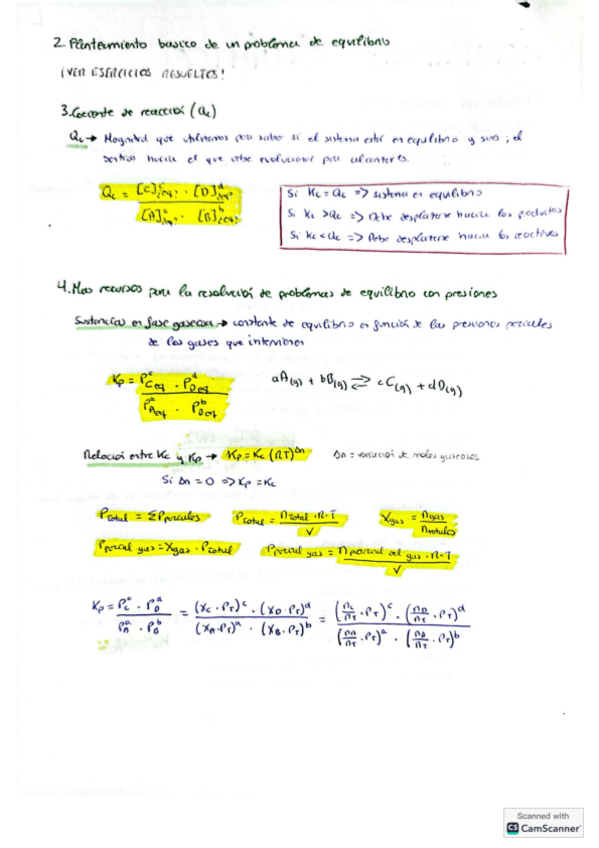 2. Planteamiento basico de un problema de equilibrio
¡VER ESERCICIOS RESUELTOS!
3. Cociente de reacción (Qc)
Qc → Magnitud que utilizamos para saber si el sistema está en equilibrio y sino, el
sentido hacia el que debe evolucionar para alcanzarlo.
Qc = [C]ᶜeq · [D]ᵈeq / [A]ᵃeq · [B]ᵇeq
Si Kc = Qc => sistema en equilibrio
Si Kc > Qc => Debe desplazarse hacia los productos
Si Kc < Qc => Debe desplazarse hacia los reactivos
4. Mas recursos para la resolución de problemas de equilibrio con presiones
Sustancias en fase gaseosa → constante de equilibrio en función de las presiones parciales
de los gases que intervienen
Kp = PᶜC eq · PᵈD eq / PᵃA eq · PᵇB eq
aA(g) + bB(g) ⇄ cC(g) + dD(g)
Relación entre Kc y Kp → Kp = Kc (RT)^Δn
Δn = variación de moles gaseosos
Si Δn = 0 => Kp = Kc
Ptotal = ΣPparciales
Ptotal = ntotal · R · T / V
Xgas = ngas / ntotales
Pparcial gas = Xgas · Ptotal
Pparcial gas = nparcial del gas · R · T / V
Kp = PᶜC · PᵈD / PᵃA · PᵇB = (XC · PT)ᶜ · (XD · PT)ᵈ / (XA · PT)ᵃ · (XB · PT)ᵇ = (nC/nT · PT)ᶜ · (nD/nT · PT)ᵈ / (nA/nT · PT)ᵃ · (nB/nT · PT)ᵇ
Scanned with
CS CamScanner